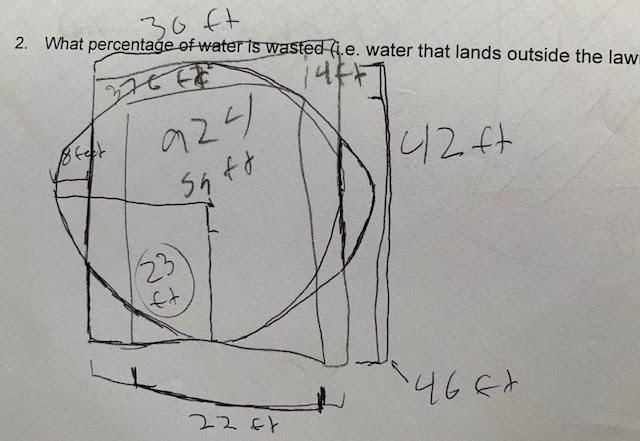 30 ft
2. What percentage of water is wasted (i.e. water that lands outside the law
376 ft
14 ft
8 feet
924
sq ft
42 ft
23
ft
46 ft
22 ft